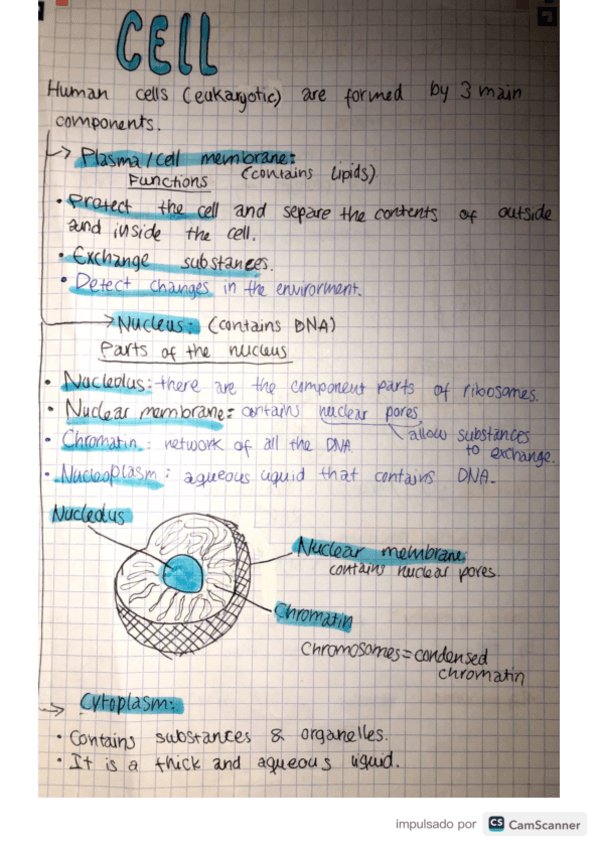 CELL
Human cells (eukaryotic) are formed by 3 main
components.
Plasma/cell membrane:
Functions (contains lipids)
• Protect the cell and separe the contents of outside
and inside the cell.
• Exchange substances.
• Detect changes in the envirorment.
Nucleus: (contains DNA)
Parts of the nucleus
• Nucleolus: there are the component parts of ribosomes.
• Nuclear membrane: contains nuclear pores
allow substances
to exchange.
• Chromatin: network of all the DNA
• Nucleoplasm: aqueous liquid that contains DNA.
Nucleolus
Nuclear membrane
contains nuclear pores
Chromatin
Chromosomes = condensed
chromatin
Cytoplasm:
• Contains substances & organelles.
• It is a thick and aqueous liquid.
impulsado por CS CamScanner